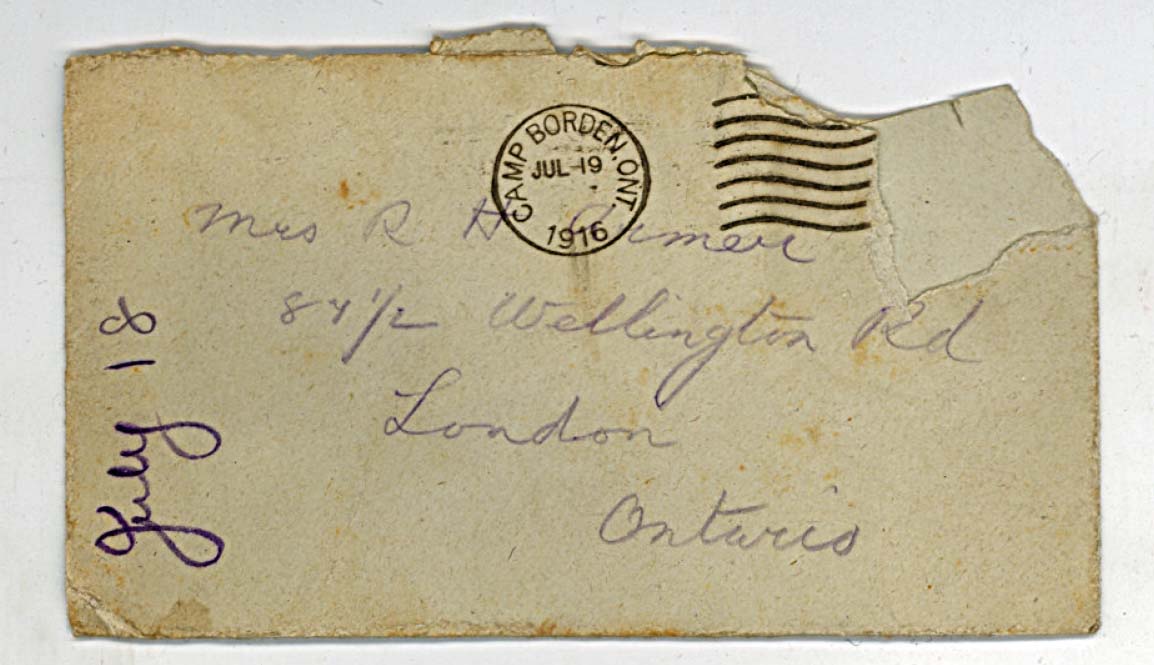 CAMP BORDEN, ONT.
JUL 19
1916
Mrs R H
84 1/2 Wellington Rd
London
Ontario
July 18